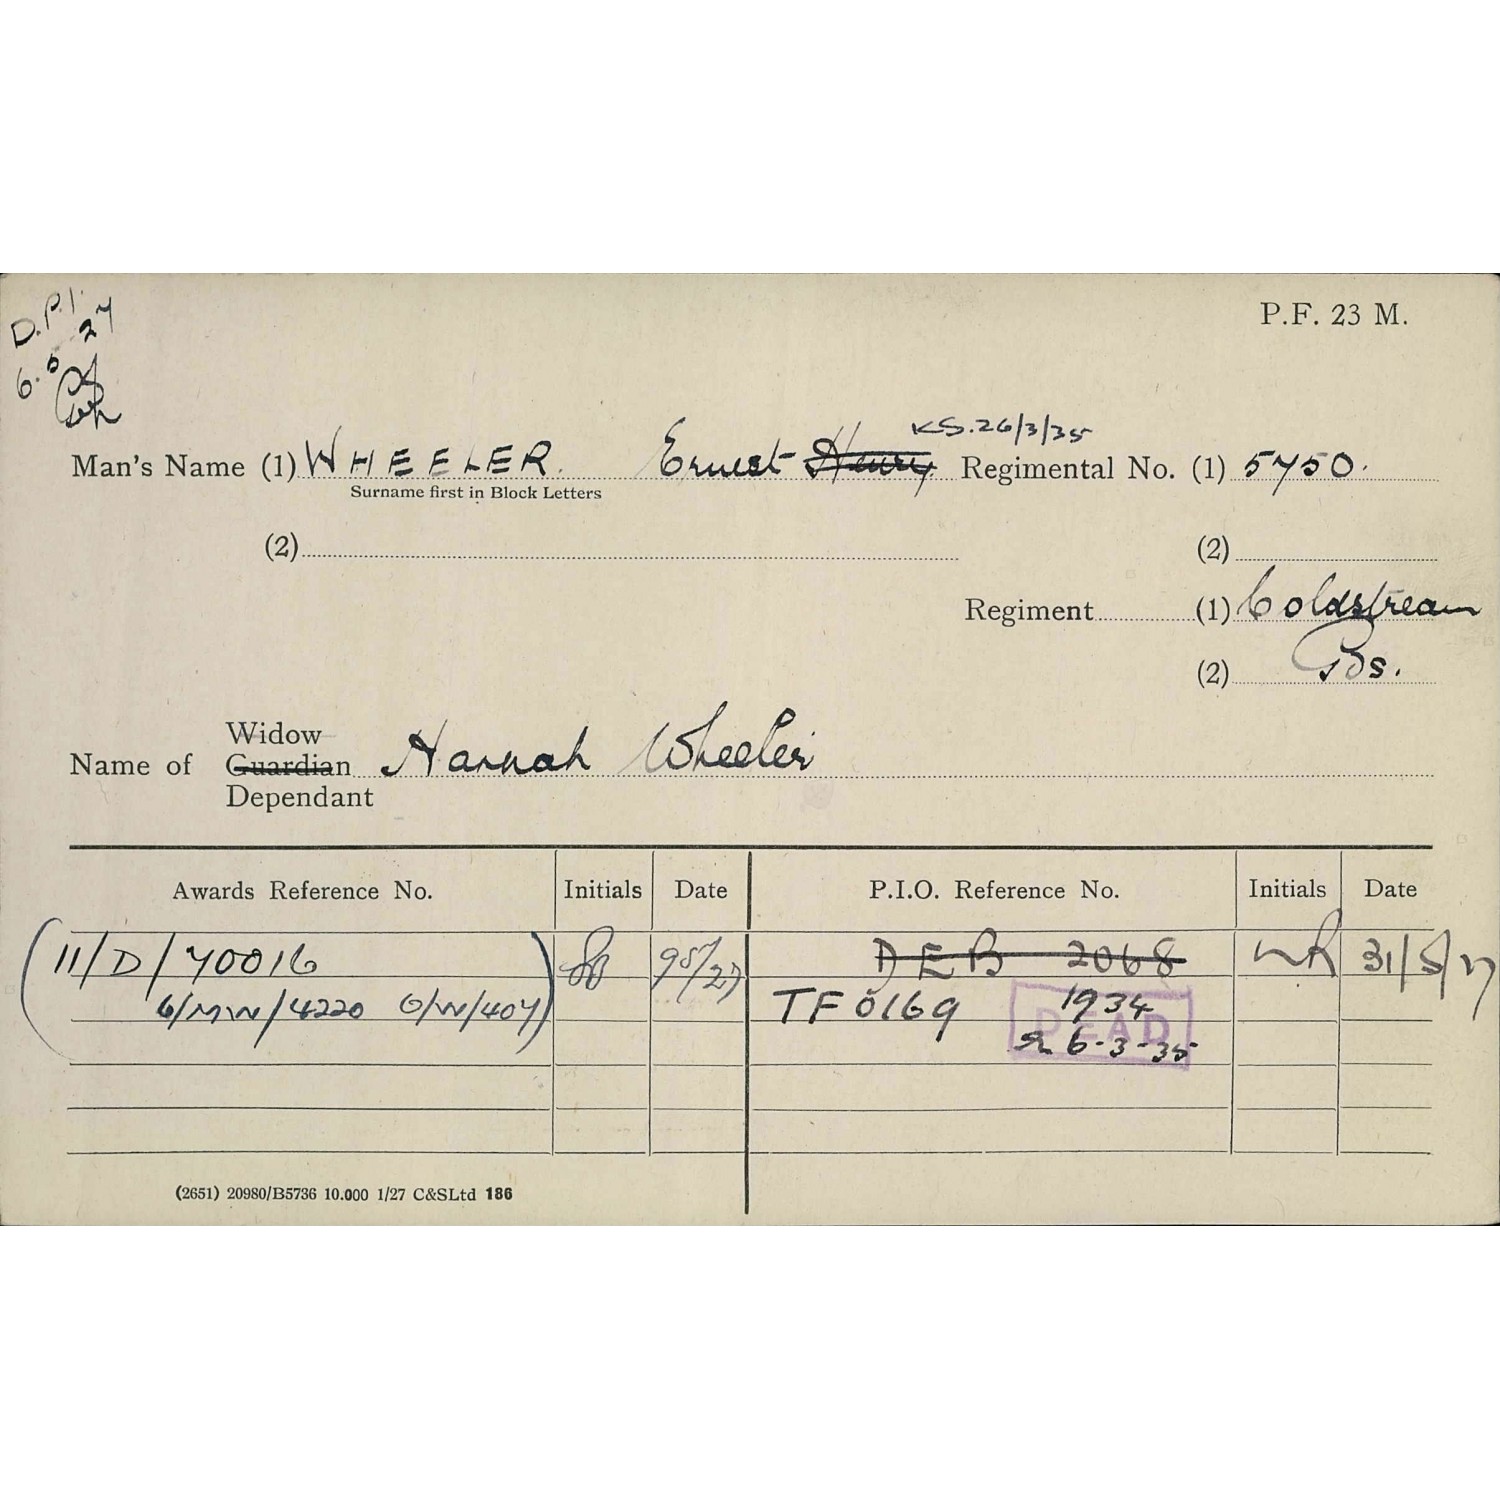 D.P.I.
6.5.27
P.F. 23 M.
KS. 26/3/35
Man's Name (1) WHEELER. Ernest Henry Regimental No. (1) 5750.
Surname first in Block Letters
(2) (2)
Regiment (1) Coldstream
(2) Gds.
Widow
Name of Guardian Hannah Wheeler
Dependant
Awards Reference No. Initials Date P.I.O. Reference No. Initials Date
11/D/70016 9/5/27 DEB 2068 WR 31/5/27
6/MW/4220 O/W/407 TF 0169 1934
DEAD
6-3-35
(2651) 20980/B5736 10.000 1/27 C&SLtd 186